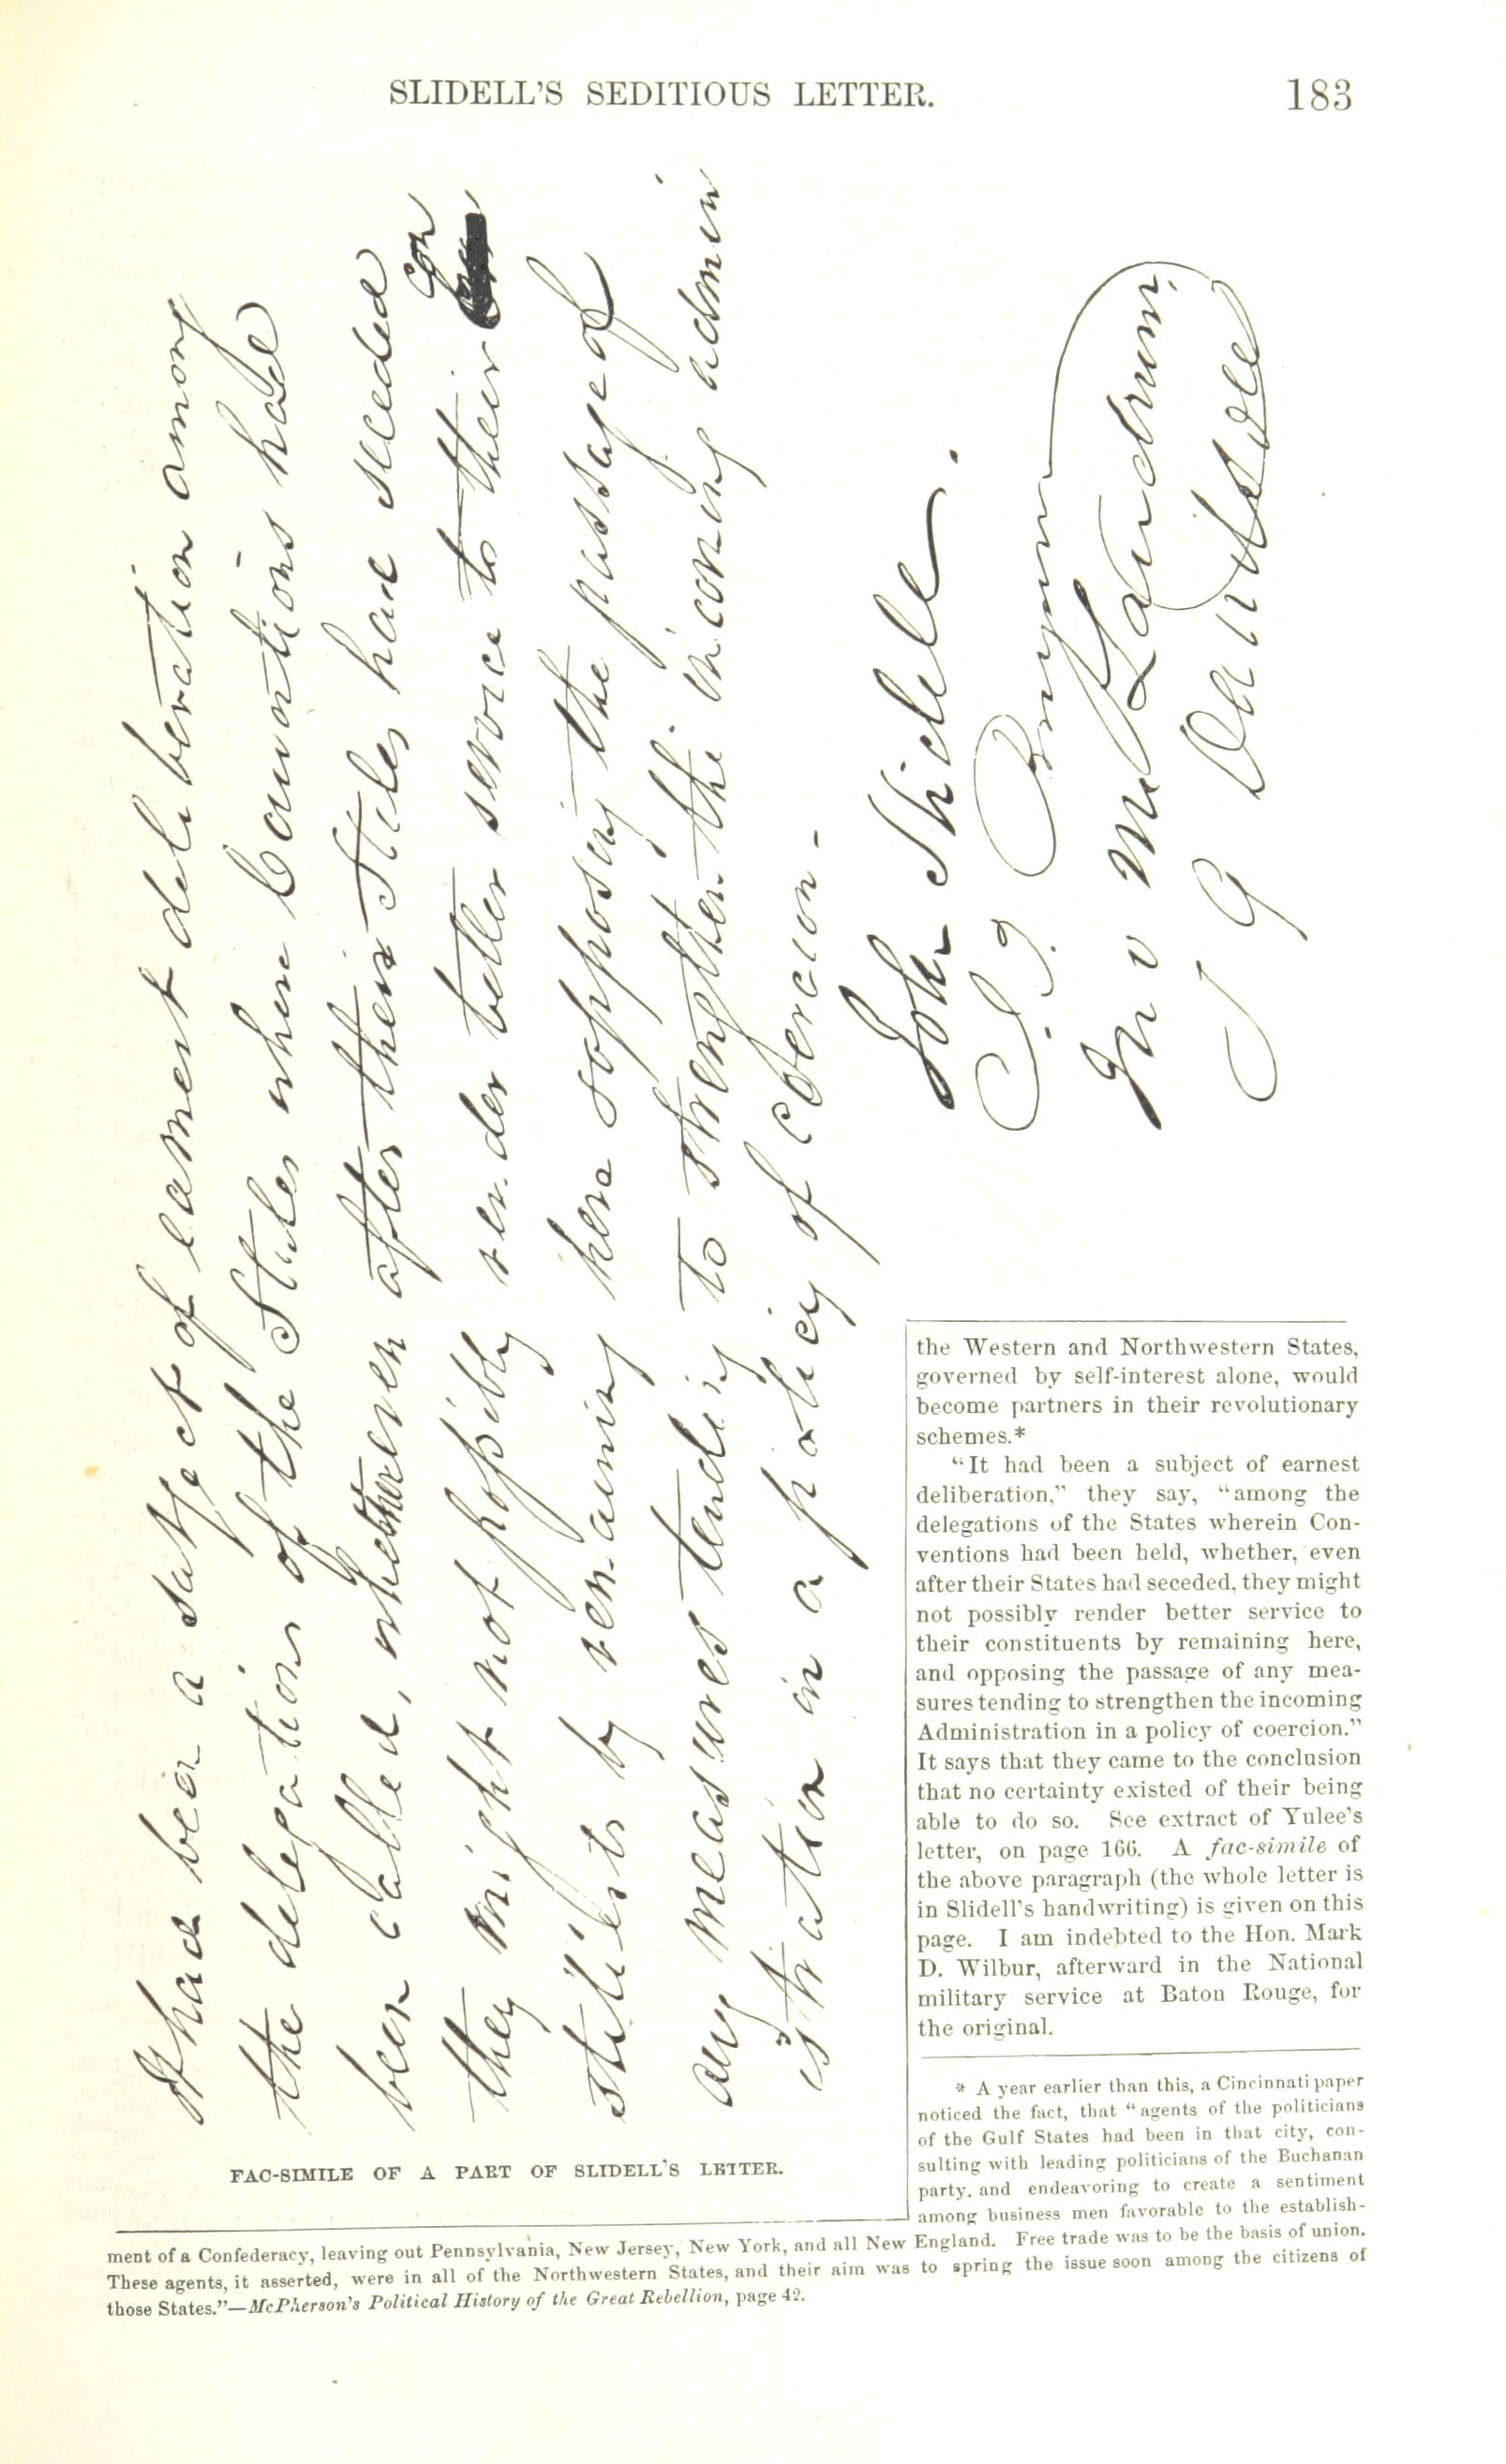 SLIDELL'S SEDITIOUS LETTER. 183
It had been a subject of earnest deliberation among
the delegations of the States where Conventions have
been called, whether even after their States have seceded
they might not possibly render better service to their con
stituents by remaining here & opposing the passage of
any measures tending to strengthen the incoming admin
istration in a policy of coercion -
John Slidell.
J. P. Benjamin
Jno M Landrum.
J G Davidson
FAC-SIMILE OF A PART OF SLIDELL'S LETTER.
the Western and Northwestern States,
governed by self-interest alone, would
become partners in their revolutionary
schemes.*
"It had been a subject of earnest
deliberation," they say, "among the
delegations of the States wherein Con-
ventions had been held, whether, even
after their States had seceded, they might
not possibly render better service to
their constituents by remaining here,
and opposing the passage of any mea-
sures tending to strengthen the incoming
Administration in a policy of coercion."
It says that they came to the conclusion
that no certainty existed of their being
able to do so. See extract of Yulee's
letter, on page 166. A fac-simile of
the above paragraph (the whole letter is
in Slidell's handwriting) is given on this
page. I am indebted to the Hon. Mark
D. Wilbur, afterward in the National
military service at Baton Rouge, for
the original.
* A year earlier than this, a Cincinnati paper
noticed the fact, that "agents of the politicians
of the Gulf States had been in that city, con-
sulting with leading politicians of the Buchanan
party, and endeavoring to create a sentiment
among business men favorable to the establish-
ment of a Confederacy, leaving out Pennsylvania, New Jersey, New York, and all New England. Free trade was to be the basis of union.
These agents, it asserted, were in all of the Northwestern States, and their aim was to spring the issue soon among the citizens of
those States."—McPherson's Political History of the Great Rebellion, page 42.